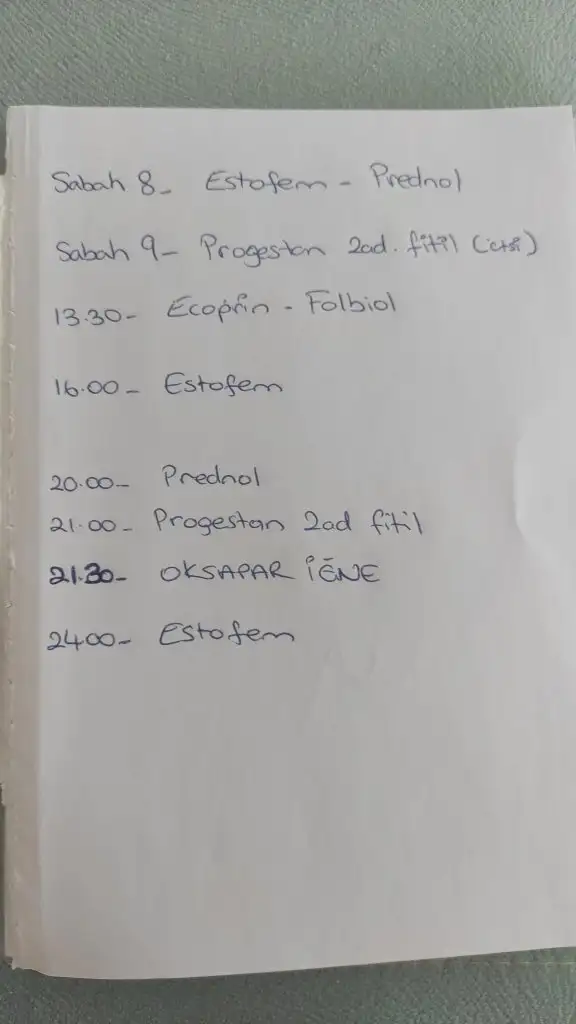 Sabah 8- Estofem - Prednol
Sabah 9- Progestan 2ad. fitil
13.30- Ecoprin - Folbiol
16.00- Estofem
20.00- Prednol
21.00- Progestan 2ad fitil
21.30- OKSAPAR İĞNE
2400- Estofem